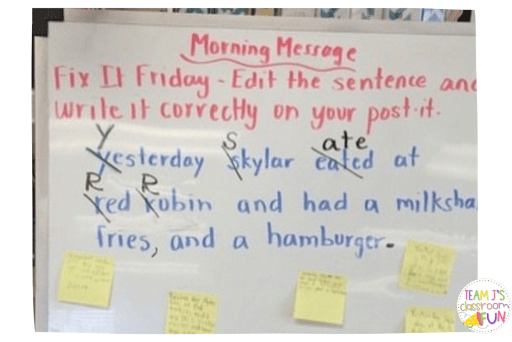 Morning Message
Fix It Friday - Edit the sentence and
write it correctly on your post-it.
Y S ate
yesterday skylar eated at
R R
red robin and had a milksha
fries, and a hamburger.
TEAM J'S
classroom
FUN